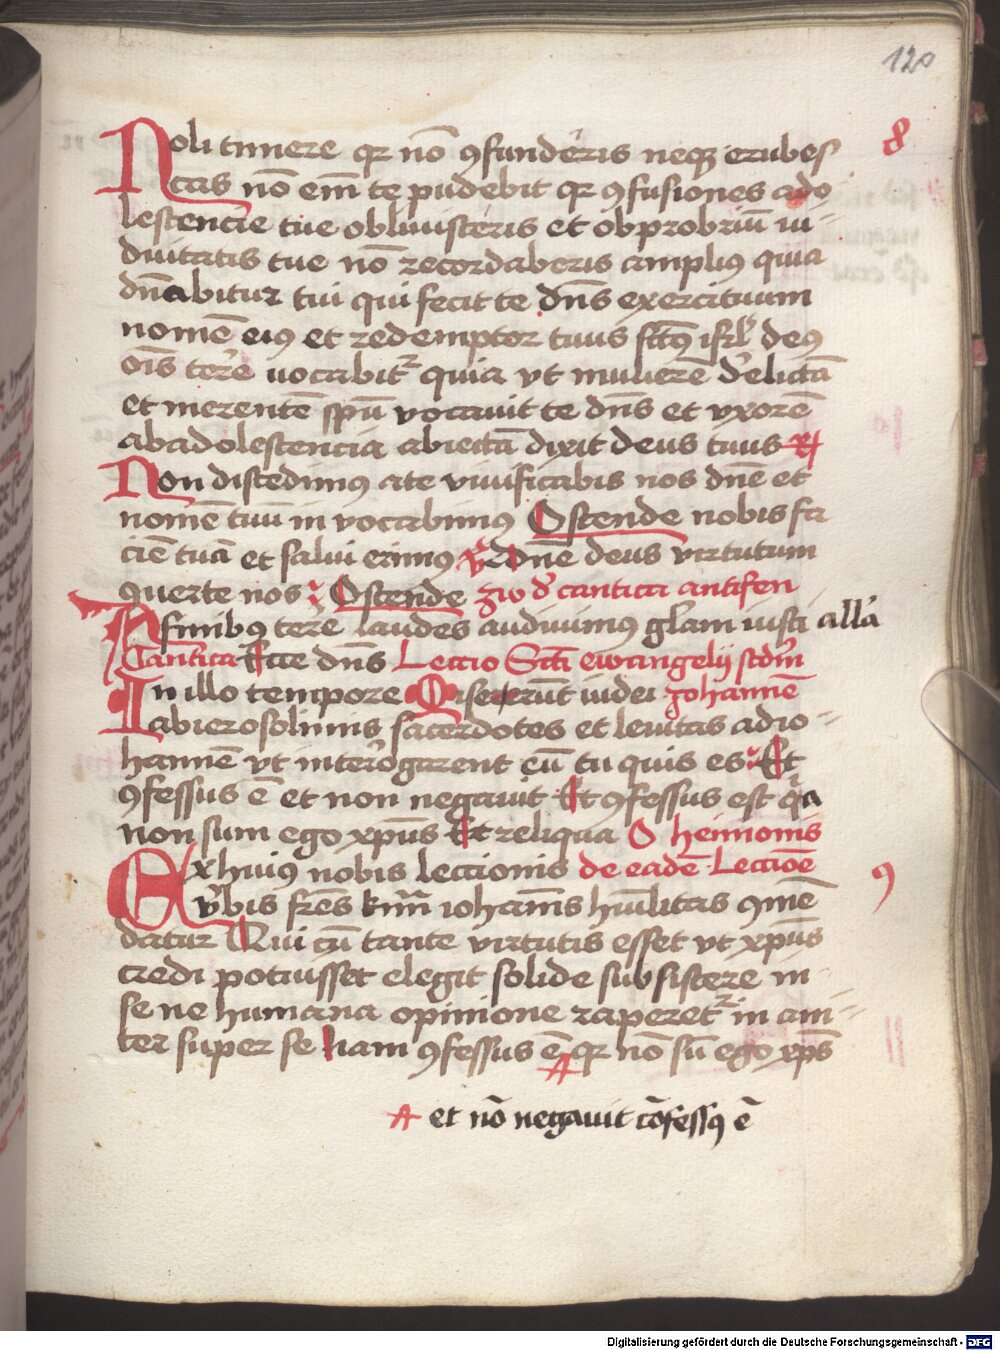 120
8
Noli timere qr nō ꝯfunderis neqꝫ erubes
cas nō em̄ te pudebit qr ꝯfusiones ado
lescencie tue obliuisceris et obprobriū ui-
duitatis tue nō recordaberis ampliꝰ quia
dn̄abitur tui qui fecit te dn̄s exercituum
nomē eiꝰ et redemptor tuus sctꝰ isrl̄ deꝰ
oīs terre uocabitr quia vt mulierē derelictā
et merentē spū vocauit te dn̄s et vxorē
abadolescencia abiectā dixit deus tuus ℟
Non discedimꝰ ate viuificabis nos dn̄e et
nomē tuū in vocabimꝰ Ostende nobis fa
ciē tuā et salui erimꝰ ℣ Dn̄e deus virtutum
ꝯuerte nos Ostende zw d' cantica antifen
A finibꝰ terre laudes audiuimꝰ glam iusti all'a
Cantica Ecce dn̄s Leccio Scti ewangelij scdm̄
In illo tempore Miserūt iudei Johannē
abierosolimis sacerdotes et leuitas adio-
hannē vt interogarent eū tu quis es Et
ꝯfessus ē et non negauit Et ꝯfessus est qa
non sum ego xpūs Et reliqua O heimonis
Ex huiꝰ nobis leccionis de eadē Leccioē 9
v'bis frēs kmi iohanis humilitas ꝯmē
datur Qui cū tante virtutis esset vt xpūs
credi potuisset elegit solide subsistere in
se ne humana opinione raperetr in ani-
ter super se nam ꝯfessus ē qr nō sū ego xps
A
A et nō negauit cōfessꝰ ē
Digitalisierung gefördert durch die Deutsche Forschungsgemeinschaft - DFG